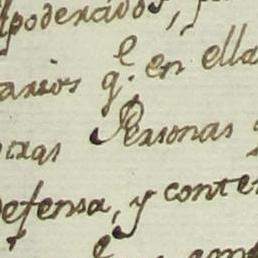 Apoderados,
arios q.e en ella
otras Personas
defensa, y conte